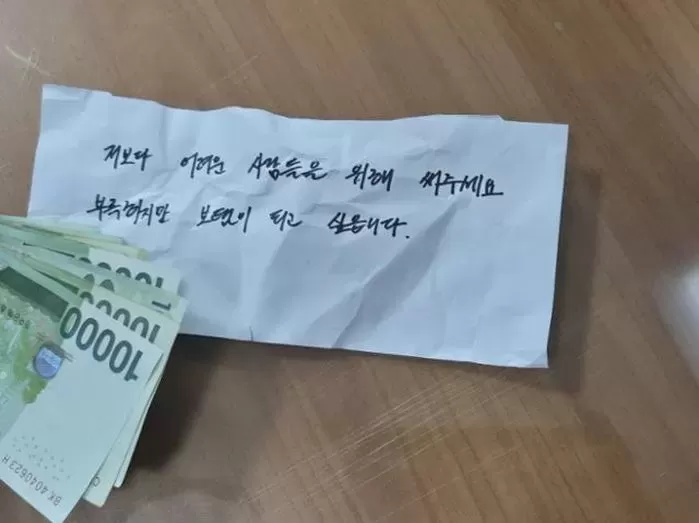 저보다 어려운 사람들을 위해 써주세요
부족하지만 보탬이 되고 싶습니다.
10000
10000
10000
BK 4040623 H